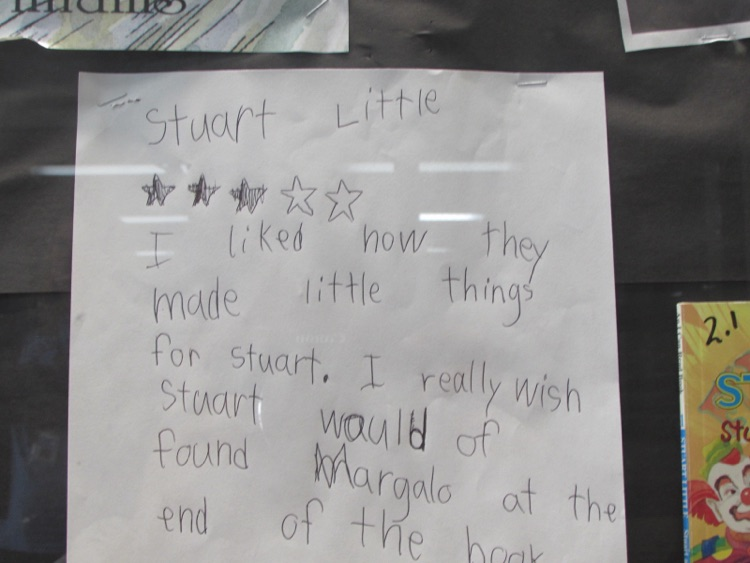 Stuart Little
I liked how they
made little things
for stuart. I really wish
Stuart would of
found Margalo at the
end of the book
2.1